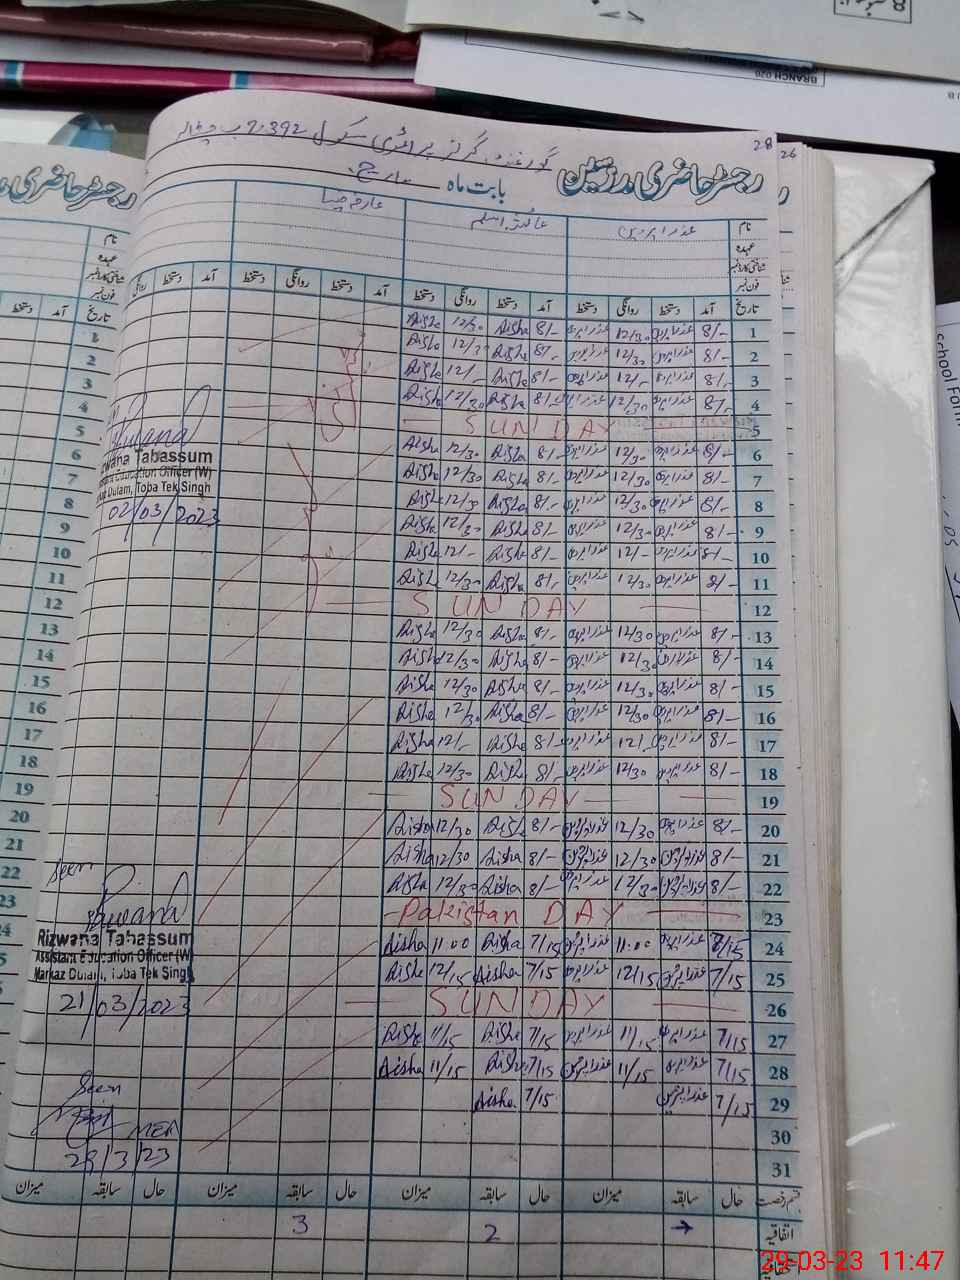 28
26
گورنمنٹ گرلز پرائمری سکول 392
رجسٹر حاضری مدرسین بابت ماہ مارچ
نام عذرا پروین
عہدہ
شناختی کارڈ نمبر
فون نمبر
تاریخ آمد دستخط روانگی دستخط آمد دستخط روانگی دستخط آمد دستخط روانگی دستخط
1 8/- عذرا پروین 12/30 عذرا پروین 8/- Aisha 12/30 Aisha
2 8/- عذرا پروین 12/30 عذرا پروین 8/- Aisha 12/30 Aisha
3 8/- عذرا پروین 12/- عذرا پروین 8/- Aisha 12/- Aisha
4 8/- عذرا پروین 12/30 عذرا پروین 8/- Aisha 12/30 Aisha
5 SUNDAY
6 8/- عذرا پروین 12/30 عذرا پروین 8/- Aisha 12/30 Aisha
7 8/- عذرا پروین 12/30 عذرا پروین 8/- Aisha 12/30 Aisha
8 8/- عذرا پروین 12/30 عذرا پروین 8/- Aisha 12/30 Aisha
9 8/- عذرا پروین 12/30 عذرا پروین 8/- Aisha 12/30 Aisha
10 8/- عذرا پروین 12/- عذرا پروین 8/- Aisha 12/- Aisha
11 8/- عذرا پروین 12/30 عذرا پروین 8/- Aisha 12/30 Aisha
12 SUNDAY
13 8/- عذرا پروین 12/30 عذرا پروین 8/- Aisha 12/30 Aisha
14 8/- عذرا پروین 12/30 عذرا پروین 8/- Aisha 12/30 Aisha
15 8/- عذرا پروین 12/30 عذرا پروین 8/- Aisha 12/30 Aisha
16 8/- عذرا پروین 12/30 عذرا پروین 8/- Aisha 12/30 Aisha
17 8/- عذرا پروین 12/- عذرا پروین 8/- Aisha 12/- Aisha
18 8/- عذرا پروین 12/30 عذرا پروین 8/- Aisha 12/30 Aisha
19 SUNDAY
20 8/- عذرا پروین 12/30 عذرا پروین 8/- Aisha 12/30 Aisha
21 8/- عذرا پروین 12/30 عذرا پروین 8/- Aisha 12/30 Aisha
22 8/- عذرا پروین 12/30 عذرا پروین 8/- Aisha 12/30 Aisha
23 Pakistan DAY
24 7/15 عذرا پروین 11:00 عذرا پروین 7/15 Aisha 11:00 Aisha
25 7/15 عذرا پروین 12/15 عذرا پروین 7/15 Aisha 12/15 Aisha
26 SUNDAY
27 7/15 عذرا پروین 11/15 عذرا پروین 7/15 Aisha 11/15 Aisha
28 7/15 عذرا پروین 11/15 عذرا پروین 7/15 Aisha 11/15 Aisha
29 7/15 عذرا پروین 7/15 Aisha
30
31
حال سابقہ میزان حال سابقہ میزان حال سابقہ میزان حال سابقہ میزان
اتفاقیہ → 2 3
Rizwana
Rizwana Tabassum
Assistant Education Officer (W)
Markaz Dulam, Toba Tek Singh
02/03/2023
Seen
Rizwana
Rizwana Tabassum
Assistant Education Officer (W)
Markaz Dulam, Toba Tek Singh
21/03/2023
Seen
MEA
29/3/23
رجسٹر حاضری
تاریخ آمد دستخط
1
2
3
4
5
6
7
8
9
10
11
12
13
14
15
16
17
18
19
20
21
22
23
24
BRANCH 020
School Form
29-03-23 11:47